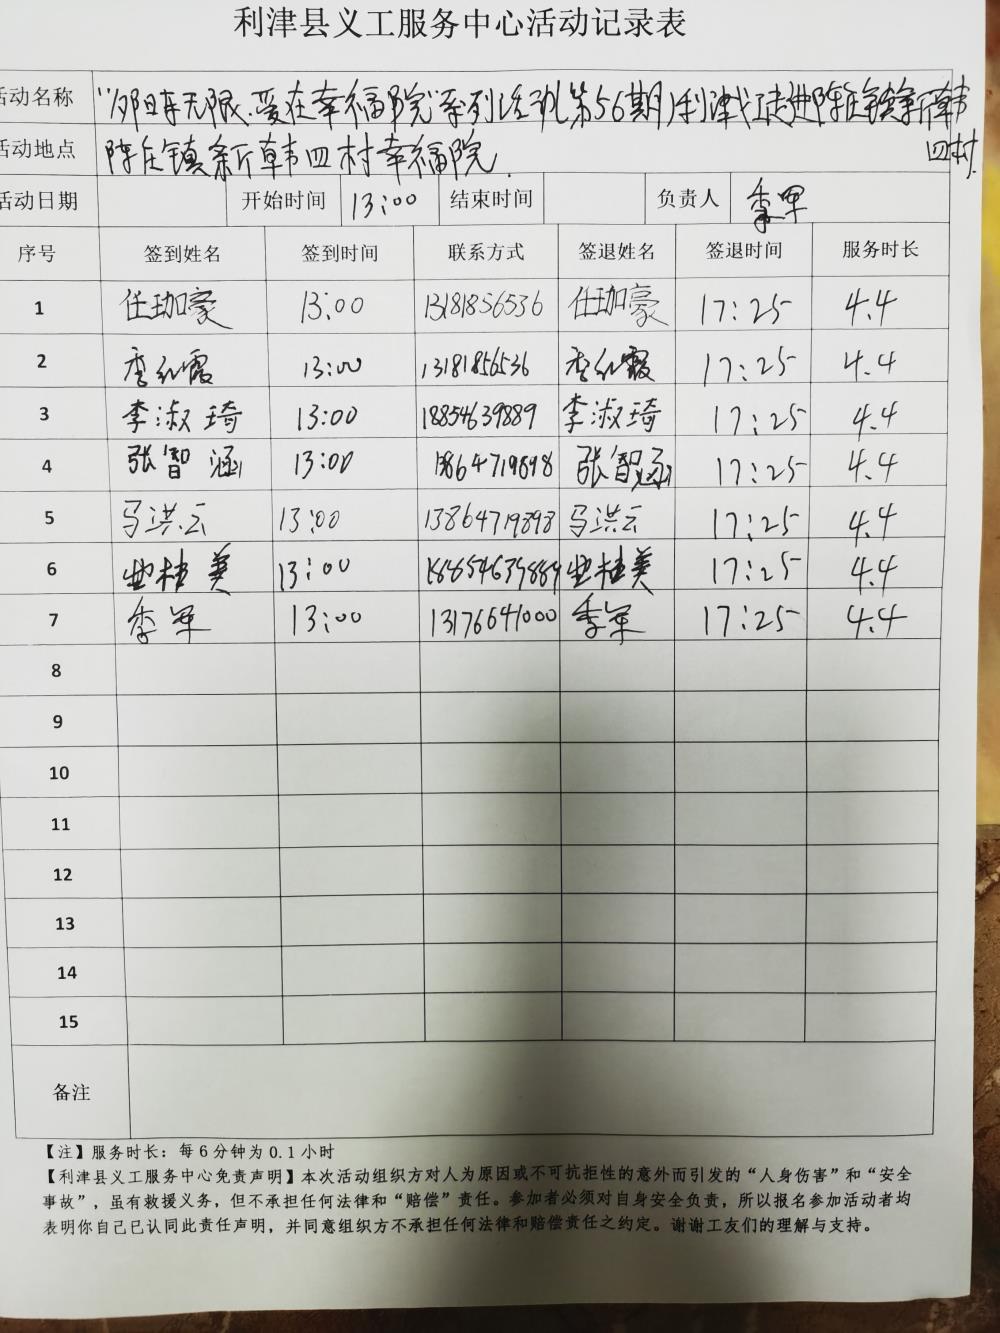 利津县义工服务中心活动记录表
活动名称 “夕阳无限.爱在幸福院”系列活动(第56期)利津义工走进陈庄镇新韩四村
活动地点 陈庄镇新韩四村幸福院.
活动日期 开始时间 13:00 结束时间 负责人 李军
序号 签到姓名 签到时间 联系方式 签退姓名 签退时间 服务时长
1 任珈豪 13:00 13181856536 任珈豪 17:25 4.4
2 李红霞 13:00 13181856536 李红霞 17:25 4.4
3 李淑琦 13:00 18854639889 李淑琦 17:25 4.4
4 张智涵 13:00 13864719898 张智涵 17:25 4.4
5 马洪云 13:00 13864719898 马洪云 17:25 4.4
6 桂美 13:00 桂美 17:25 4.4
7 李军 13:00 13176641000 李军 17:25 4.4
8
9
10
11
12
13
14
15
备注
【注】服务时长：每6分钟为0.1小时
【利津县义工服务中心免责声明】本次活动组织方对人为原因或不可抗拒性的意外而引发的“人身伤害”和“安全
事故”，虽有救援义务，但不承担任何法律和“赔偿”责任。参加者必须对自身安全负责，所以报名参加活动者均
表明你自己已认同此责任声明，并同意组织方不承担任何法律和赔偿责任之约定。谢谢工友们的理解与支持。